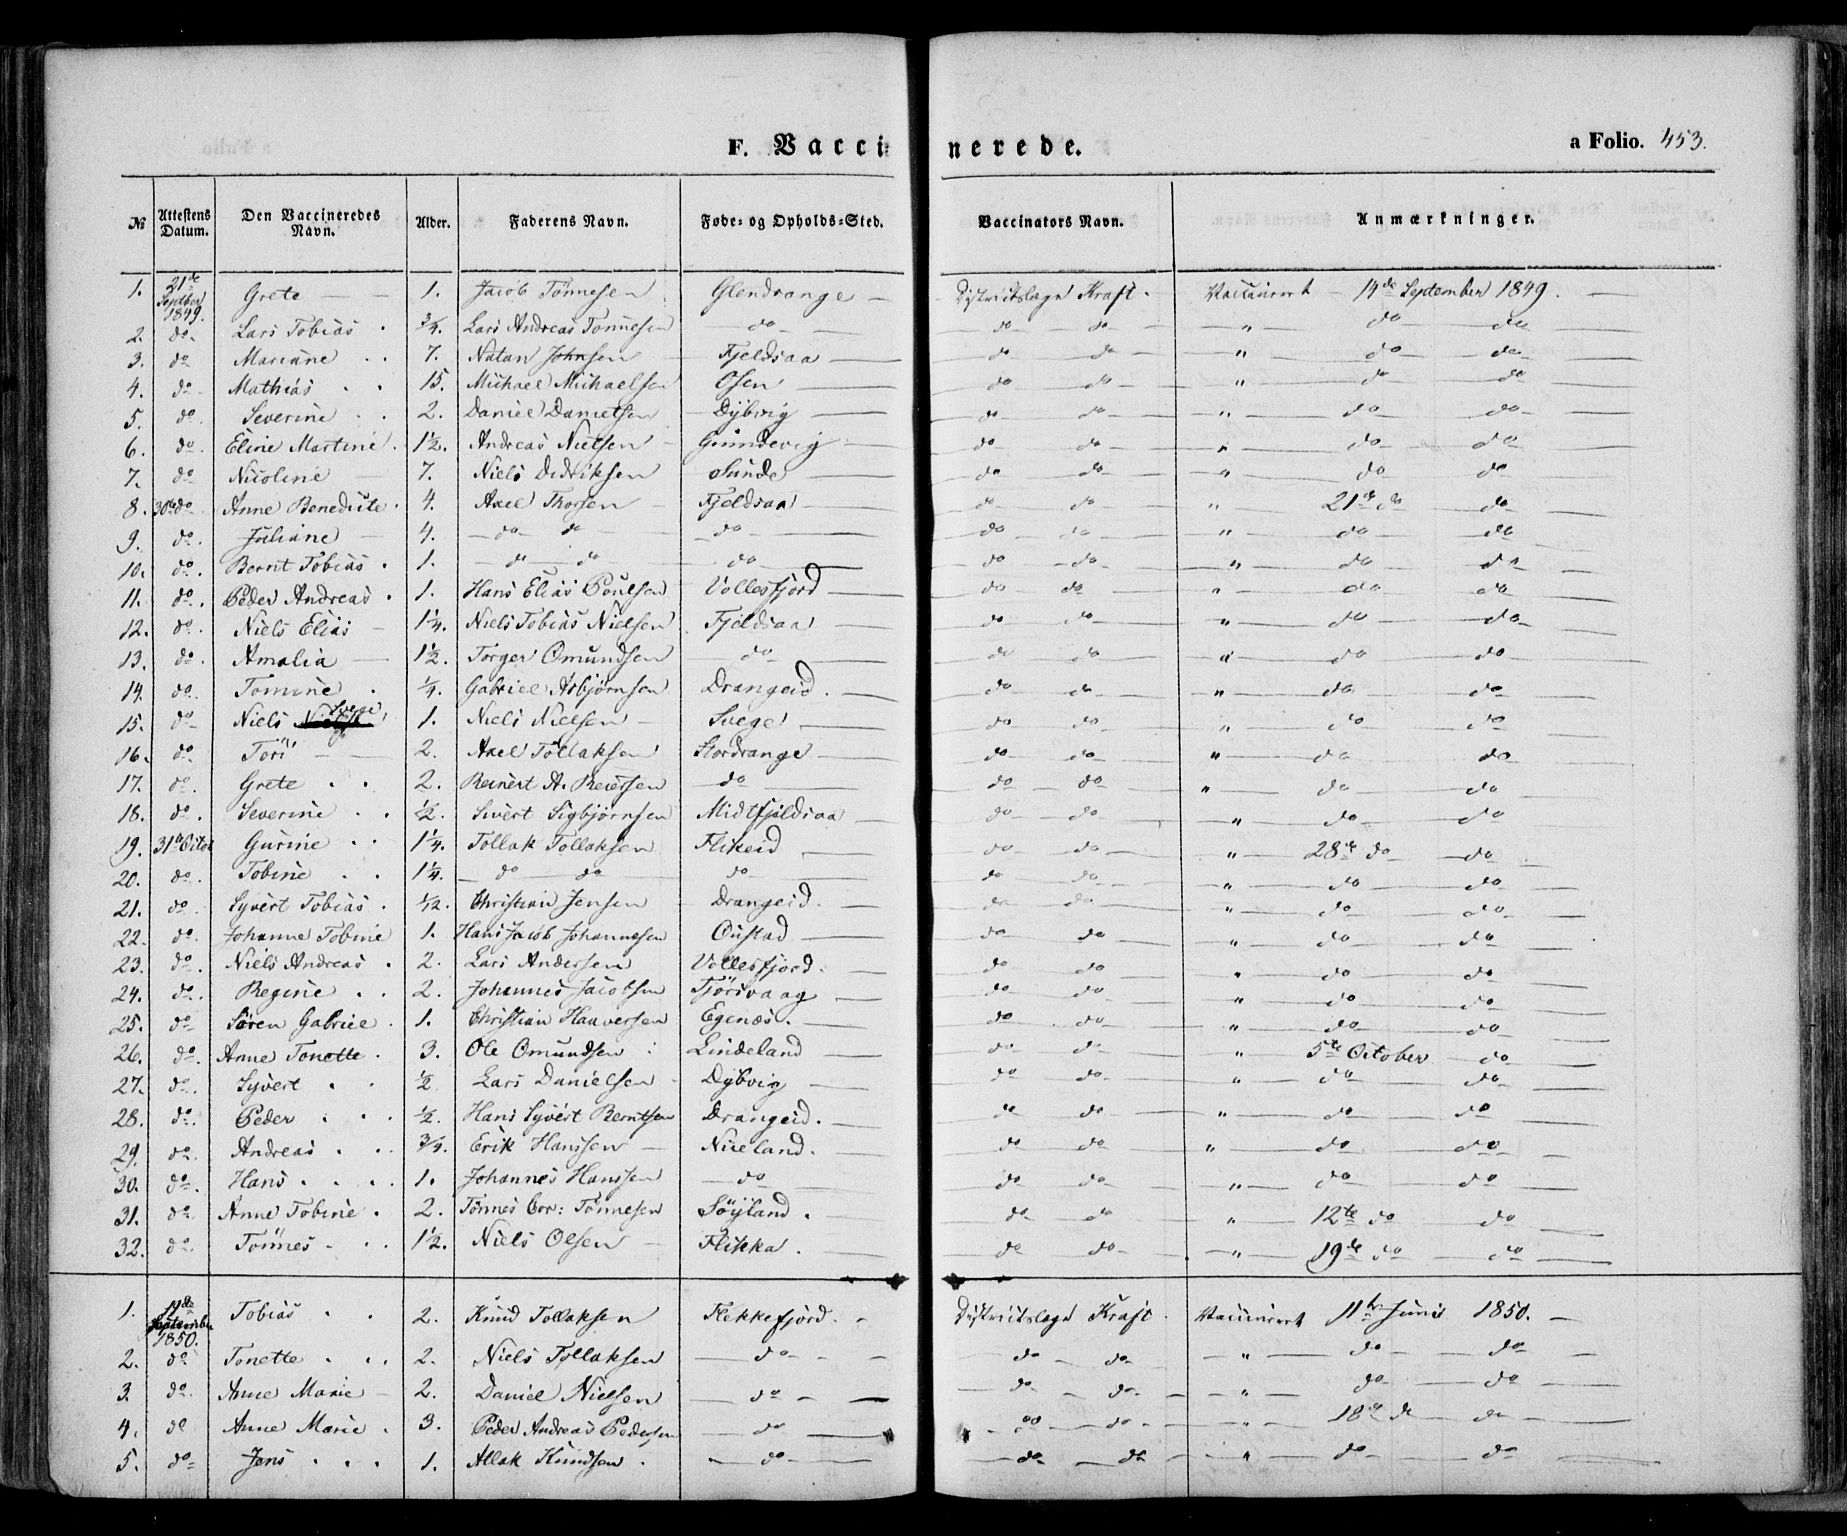 F. Vaccinerede.
a Folio. 453.
№ | Attestens Datum. | Den Vaccineredes Navn. | Alder. | Faderens Navn. | Føde- og Opholds-Sted. | Vaccinators Navn. | Anmærkninger.
1. | 21de Septbr 1849. | Grete | 1. | Jacob Tønnesen | Glendrange | Districtslæge Kraft. | Vaccineret 14de September 1849.
2. | do | Lars Tobias | 3/4. | Lars Andreas Tønnesen | do | do do | " do do
3. | do | Mariane | 7. | Natan Johnsen | Fjeldsaa | do do | " do do
4. | do | Mathias | 15. | Michael Michaelsen | Osen | do do | " do do
5. | do | Severine | 2. | Daniel Danielsen | Dybvig | do do | " do do
6. | do | Eline Martine | 1½. | Andreas Nielsen | Grundevig | do do | " do do
7. | do | Nicoline | 7. | Niels Didriksen | Sunde | do do | " do do
8. | 30te do | Anne Benedicte | 4. | Axel Thorsen | Fjeldsaa | do do | " 21de do do
9. | do | Juliane | 4. | do do | do | do do | " do do
10. | do | Bernt Tobias | 1. | do do | do | do do | " do do
11. | do | Peder Andreas | 1. | Hans Elias Poulsen | Vollesfjord | do do | " do do
12. | do | Niels Elias | 1¼. | Niels Tobias Nielsen | Fjeldsaa | do do | " do do
13. | do | Amalia | 1½. | Torger Omundsen | do | do do | " do do
14. | do | Tomine | ¼. | Gabriel Asbjørnsen | Drangeid. | do do | " do do
15. | do | Niels Svege | 1. | Niels Nielsen | Svege | do do | " do do
16. | do | Tori | 2. | Axel Tollaksen | Stordrange | do do | " do do
17. | do | Grete | 2. | Reinert A. Reiersen | do | do do | " do do
18. | do | Severine | ½. | Sivert Sigbjørnsen | Midtfjeldsaa | do do | " do do
19. | 31te Octbr | Gurine | 1¼. | Tollak Tollaksen | Flikeid | do do | " 28de do do
20. | do | Tobine | 1¼. | do do | do | do do | " do do
21. | do | Syvert Tobias | 1/12. | Christian Jensen | Drangeid. | do do | " do do
22. | do | Johanne Tobine | 1. | Hans Jacob Johannesen | Oustad | do do | " do do
23. | do | Niels Andreas | 2. | Lars Andersen | Vollesfjord. | do do | " do do
24. | do | Regine | 2. | Johannes Jacobsen | Tjörsvaag | do do | " do do
25. | do | Søren Gabriel | 1. | Christian Hanversen | Egenæs. | do do | " do do
26. | do | Anne Tonette | 3. | Ole Omundsen | Lindeland | do do | " 5te October do
27. | do | Syvert | ½ | Lars Danielsen | Dybvig | do do | " do do
28. | do | Peder | ½. | Hans Syvert Berntsen | Drangeid. | do do | " do do
29. | do | Andreas | 3/4. | Erik Hanssen | Nueland. | do do | " do do
30. | do | Hans | 1. | Johannes Hanssen | do | do do | " do do
31. | do | Anne Tobine | 2. | Tønnes Cor: Tønnesen | Søyland. | do do | " 12te do do
32. | do | Tønnes | 1½. | Niels Olsen | Flikka. | do do | " 19de do do
1. | September 1850. | Tobias | 2. | Knud Tollaksen | Flekkefjord. | Districtslæge Kraft. | Vaccineret 11te Junii 1850.
2. | do | Tonette | 2. | Niels Tollaksen | do | do do | " do do
3. | do | Anne Marie | 2. | Daniel Nielsen | do | do do | " do do
4. | do | Anne Marie | 3. | Peder Andreas Pedersen | do | do do | " 18de do do
5. | do | Jens | 1. | Atlak Knudsen. | do | do do | " do do